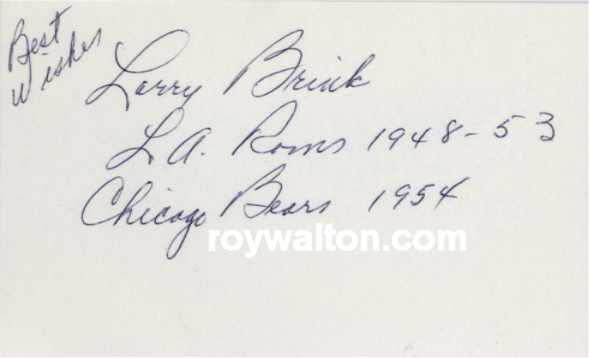 Best
Wishes
Larry Brink
L.A. Rams 1948-53
Chicago Bears 1954
roywalton.com